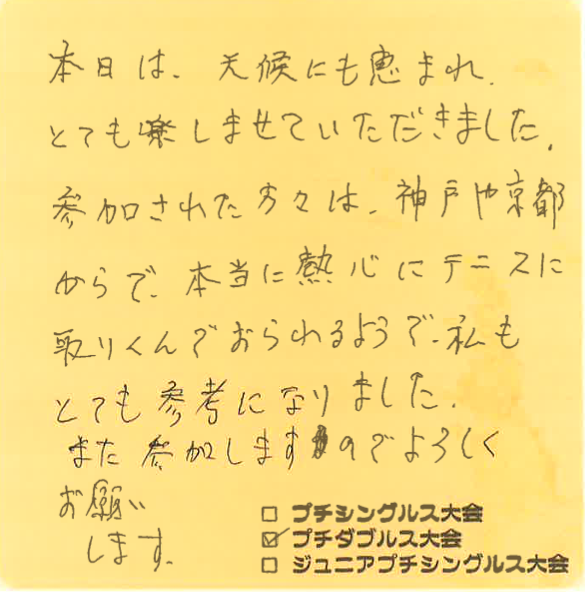 本日は、天候にも恵まれ、
とても楽しませていただきました。
参加された方々は、神戸や京都
からで、本当に熱心にテニスに
取りくんでおられるようで、私も
とても参考になりました。
また参加しますのでよろしく
お願い
します。
□ プチシングルス大会
☑ プチダブルス大会
□ ジュニアプチシングルス大会